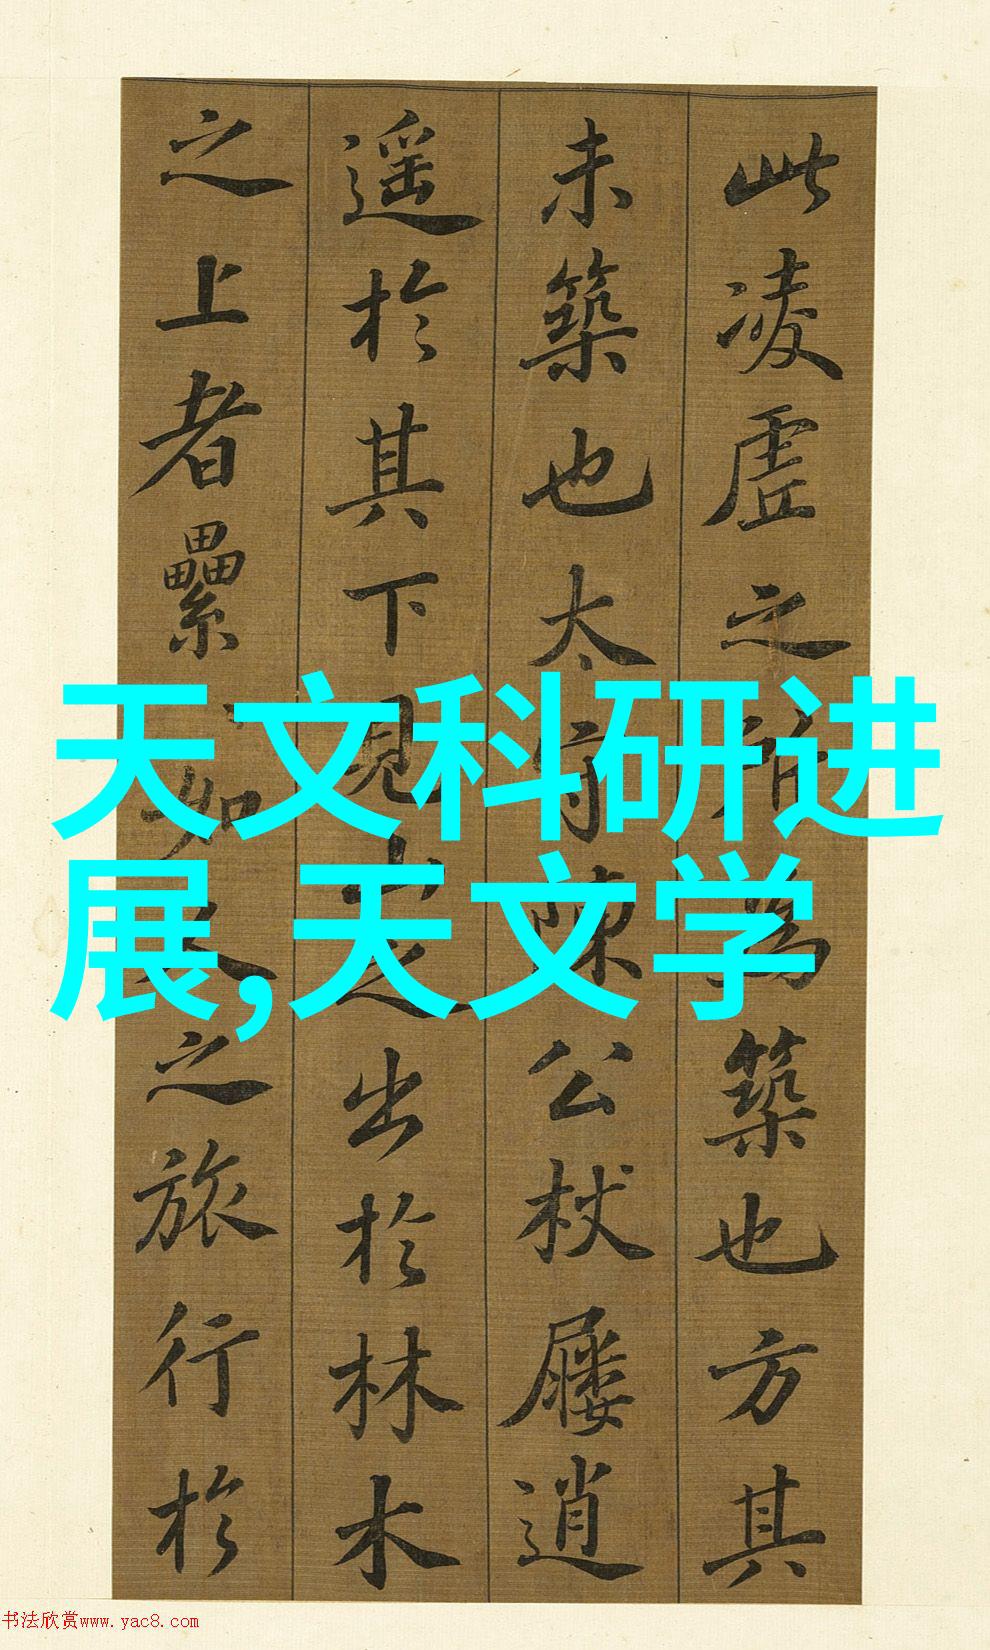 此凌虚之所為築也方其
未築也太守陳公杖屨逍
遥於其下見山之出於林木
之上者纍纍如人之旅行於
天文科研进
展,天文学
书法欣赏www.yac8.com